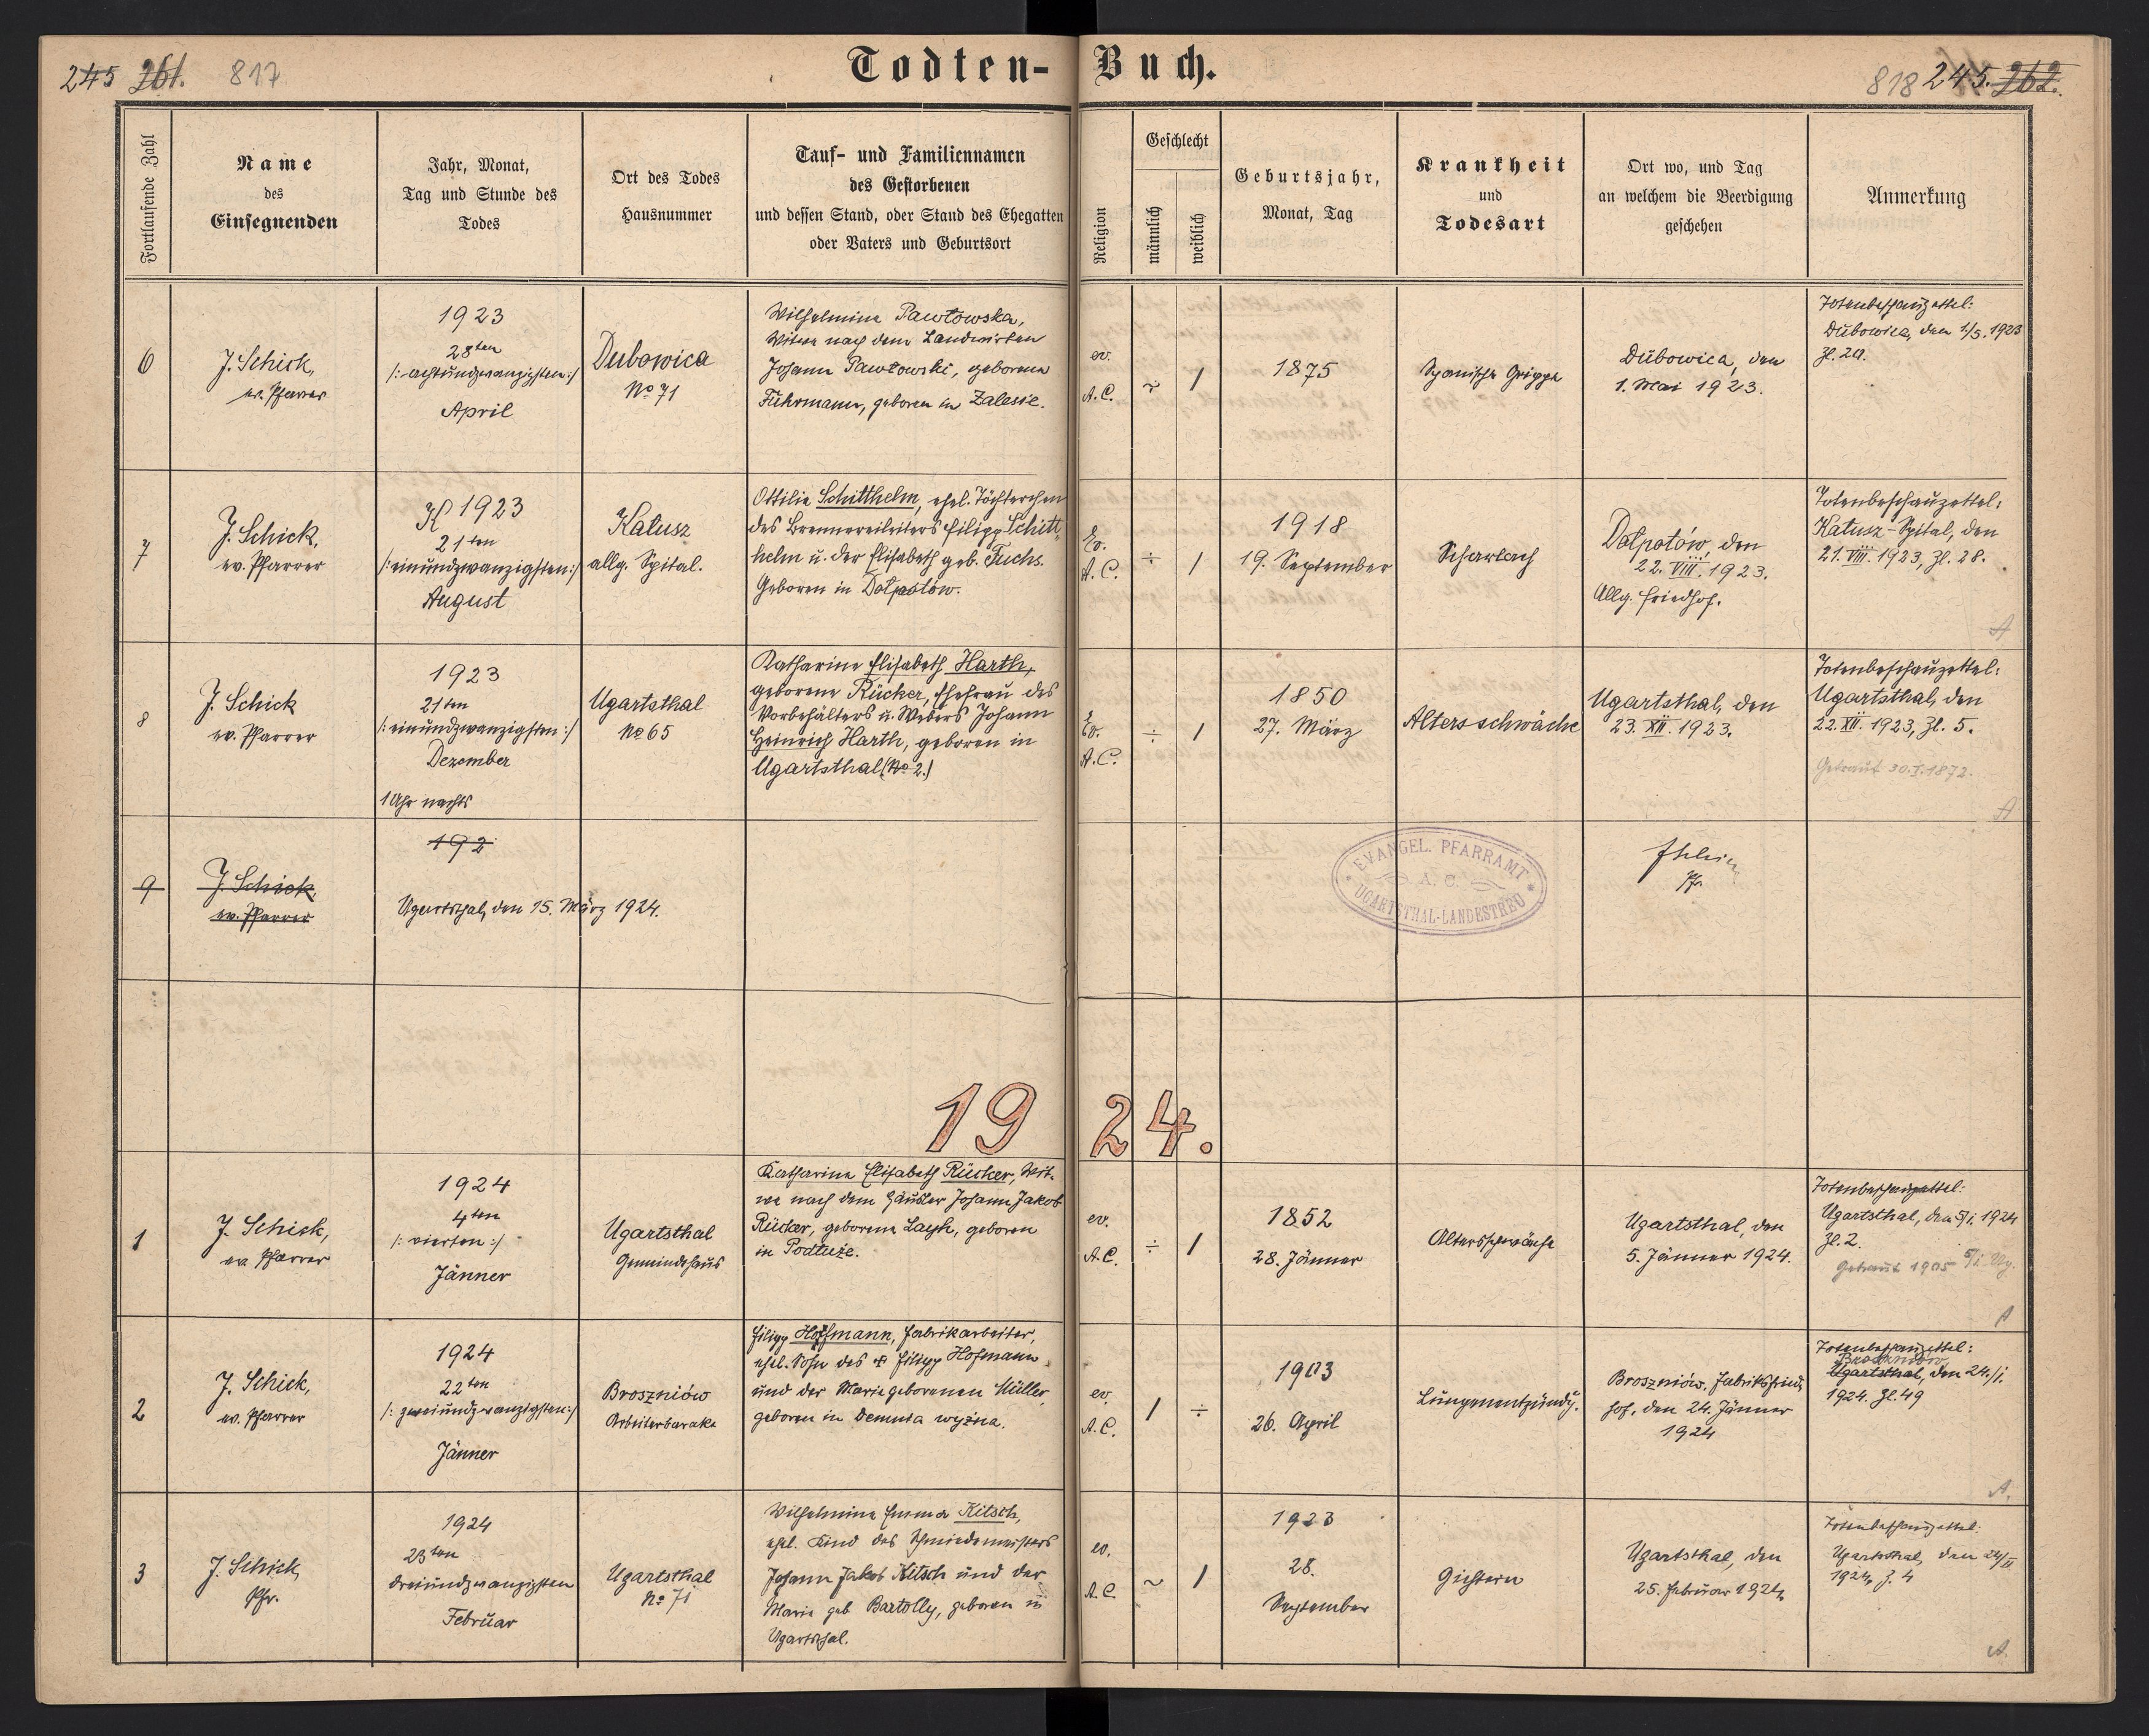 245 261. 817
Todten-Buch.
818 245. 262.
Fortlaufende Zahl
Name
des
Einsegnenden
Jahr, Monat,
Tag und Stunde des
Todes
Ort des Todes
Hausnummer
Tauf- und Familiennamen
des Gestorbenen
und dessen Stand, oder Stand des Ehegatten
oder Vaters und Geburtsort
Religion
Geschlecht
männlich
weiblich
Geburtsjahr,
Monat, Tag
Krankheit
und
Todesart
Ort wo, und Tag
an welchem die Beerdigung
geschehen
Anmerkung
6
J. Schick,
ev. Pfarrer
1923
28ten
/: achtundzwanzigsten :/
April
Dubowica
No 71
Wilhelmine Pawłowska,
Witwe nach dem Landwirten
Johann Pawłowski, geborene
Fuhrmann, geboren in Zalesie.
ev.
A.C.
~
1
1875
Spanische Grippe
Dubowica, den
1. Mai 1923.
Totenbeschauzettel:
Dubowica, den 1/5. 1923
Zl. 20.
7
J. Schick,
ev. Pfarrer
1923
21ten
/: einundzwanzigsten :/
August
Kałusz
allg. Spital.
Ottilie Schitthelm, ehel. Töchterchen
des Brennereileiters Filipp Schitt-
helm u. der Elisabeth geb. Fuchs.
Geboren in Dołpotów.
Ev.
A.C.
÷
1
1918
19. September
Scharlach
Dołpotów, den
22. VIII. 1923.
Allg. Friedhof.
Totenbeschauzettel:
Kałusz-Spital, den
21. VIII. 1923, Zl. 28.
A
8
J. Schick
ev. Pfarrer
1923
21ten
/: einundzwanzigsten :/
Dezember
1 Uhr nachts
Ugartsthal
No 65
Katharine Elisabeth Harth,
geborene Rücker, Ehefrau des
Vorbehälters u. Webers Johann
Heinrich Harth, geboren in
Ugartsthal (No 2.)
Ev.
A.C.
÷
1
1850
27. März
Altersschwäche
Ugartsthal, den
23. XII. 1923.
Totenbeschauzettel:
Ugartsthal, den
22. XII. 1923, Zl. 5.
Getraut 30.I.1872.
A
9
J. Schick,
ev. Pfarrer
192
Ugartsthal, den 15. März 1924.
EVANGEL. PFARRAMT
A. C.
UGARTSTHAL-LANDESTREU
Pfr.
1924.
1
J. Schick,
ev. Pfarrer
1924
4ten
/: vierten :/
Jänner
Ugartsthal
Gemeindehaus
Katharina Elisabeth Rücker, Wit-
we nach dem Häusler Johann Jakob
Rücker, geborene Layh, geboren
in Podłuże.
ev.
A.C.
÷
1
1852
28. Jänner
Altersschwäche
Ugartsthal, den
5. Jänner 1924.
Totenbeschauzettel:
Ugartsthal, den 5/1. 1924
Zl. 2.
Getraut 1905
A
2
J. Schick,
ev. Pfarrer
1924
22ten
/: zweiundzwanzigsten :/
Jänner
Broszniów
Arbeiterbarake
Filipp Hoffmann, Fabrikarbeiter,
ehel. Sohn des + Filipp Hofmann
und der Marie geborenen Müller,
geboren in Demnia wyżna.
ev.
A.C.
1
÷
1903
26. April
Lungenentzündg.
Broszniów, Fabriksfried-
hof, den 24. Jänner
1924
Totenbeschauzettel:
Broszniów
Ugartsthal, den 24./1.
1924. Zl. 49
A.
3
J. Schick,
Pfr.
1924
23ten
dreiundzwanzigsten
Februar
Ugartsthal
No 71
Wilhelmine Emma Kitsch,
ehel. Kind des Schmiedemeisters
Johann Jakob Kitsch und der
Marie geb. Bartolly, geboren in
Ugartsthal.
ev.
A.C.
~
1
1923
28.
September
Gichtern
Ugartsthal, den
25. Februar 1924
Totenbeschauzettel:
Ugartsthal, den 24/II
1924, Z. 4
A.